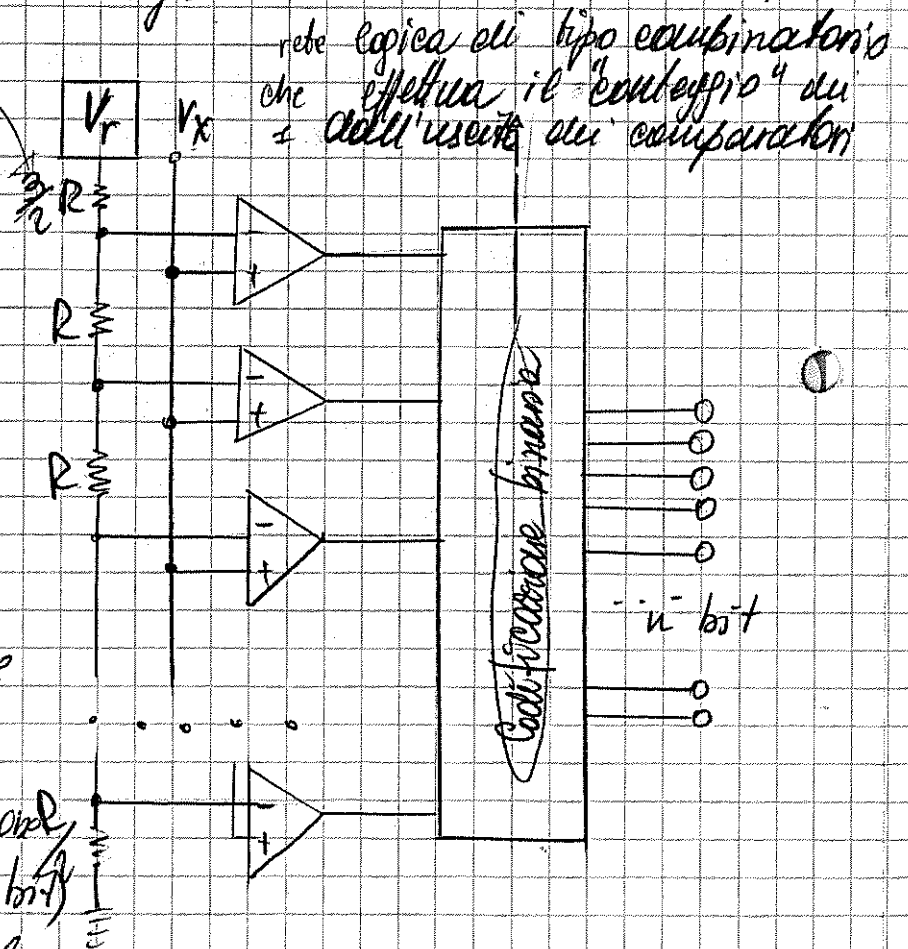 rete logica di tipo combinatorio
che effettua il "conteggio" dei
1 dall'uscita dei comparatori
Vr
Vx
3/2 R
-
+
R
-
+
R
-
+
Codificazione binaria
n bit
-
+
R/2
bit)